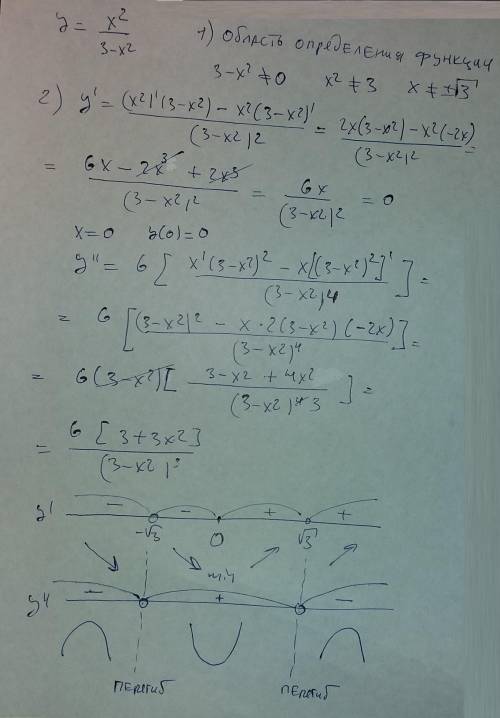 y = x²/(3-x²)   1) ОБЛАСТЬ ОПРЕДЕЛЕНИЯ ФУНКЦИИ
3-x² ≠ 0   x² ≠ 3   x ≠ ±√3
2) y' = ((x²)'(3-x²) - x²(3-x²)')/(3-x²)² = (2x(3-x²) - x²(-2x))/(3-x²)² =
= (6x - 2x³ + 2x³)/(3-x²)² = 6x/(3-x²)² = 0
x=0   y(0)=0
y'' = 6 [ (x'(3-x²)² - x[(3-x²)²]')/(3-x²)⁴ ] =
= 6 [ ((3-x²)² - x·2(3-x²)(-2x))/(3-x²)⁴ ] =
= 6(3-x²) [ (3-x² + 4x²)/(3-x²)⁴ 3 ] =
= 6 [3+3x²]/(3-x²)³
y' - - + +
-√3 0 √3
min
y'' - + -
ПЕРЕГИБ ПЕРЕГИБ